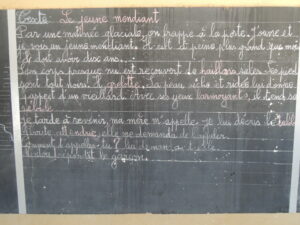 Texte : Le jeune mendiant
Par une matinée glaciale, on frappe à la porte. J'ouvre et
je vois un jeune mendiant. Il est à peine plus grand que moi
Il doit avoir dix ans...
Son corps presque nu est recouvert de haillons sales. Ses pieds
sont tout noirs. Il grelotte. Sa peau sèche et ridée lui donne
l'aspect d'un vieillard. Avec ses yeux larmoyants, il tend sa
sébile.
Je tarde à revenir, ma mère m'appelle. Je lui décris le
elle me demanda de
Comment t'appelles-tu ? lui demanda-t-elle.
répondit le garçon.